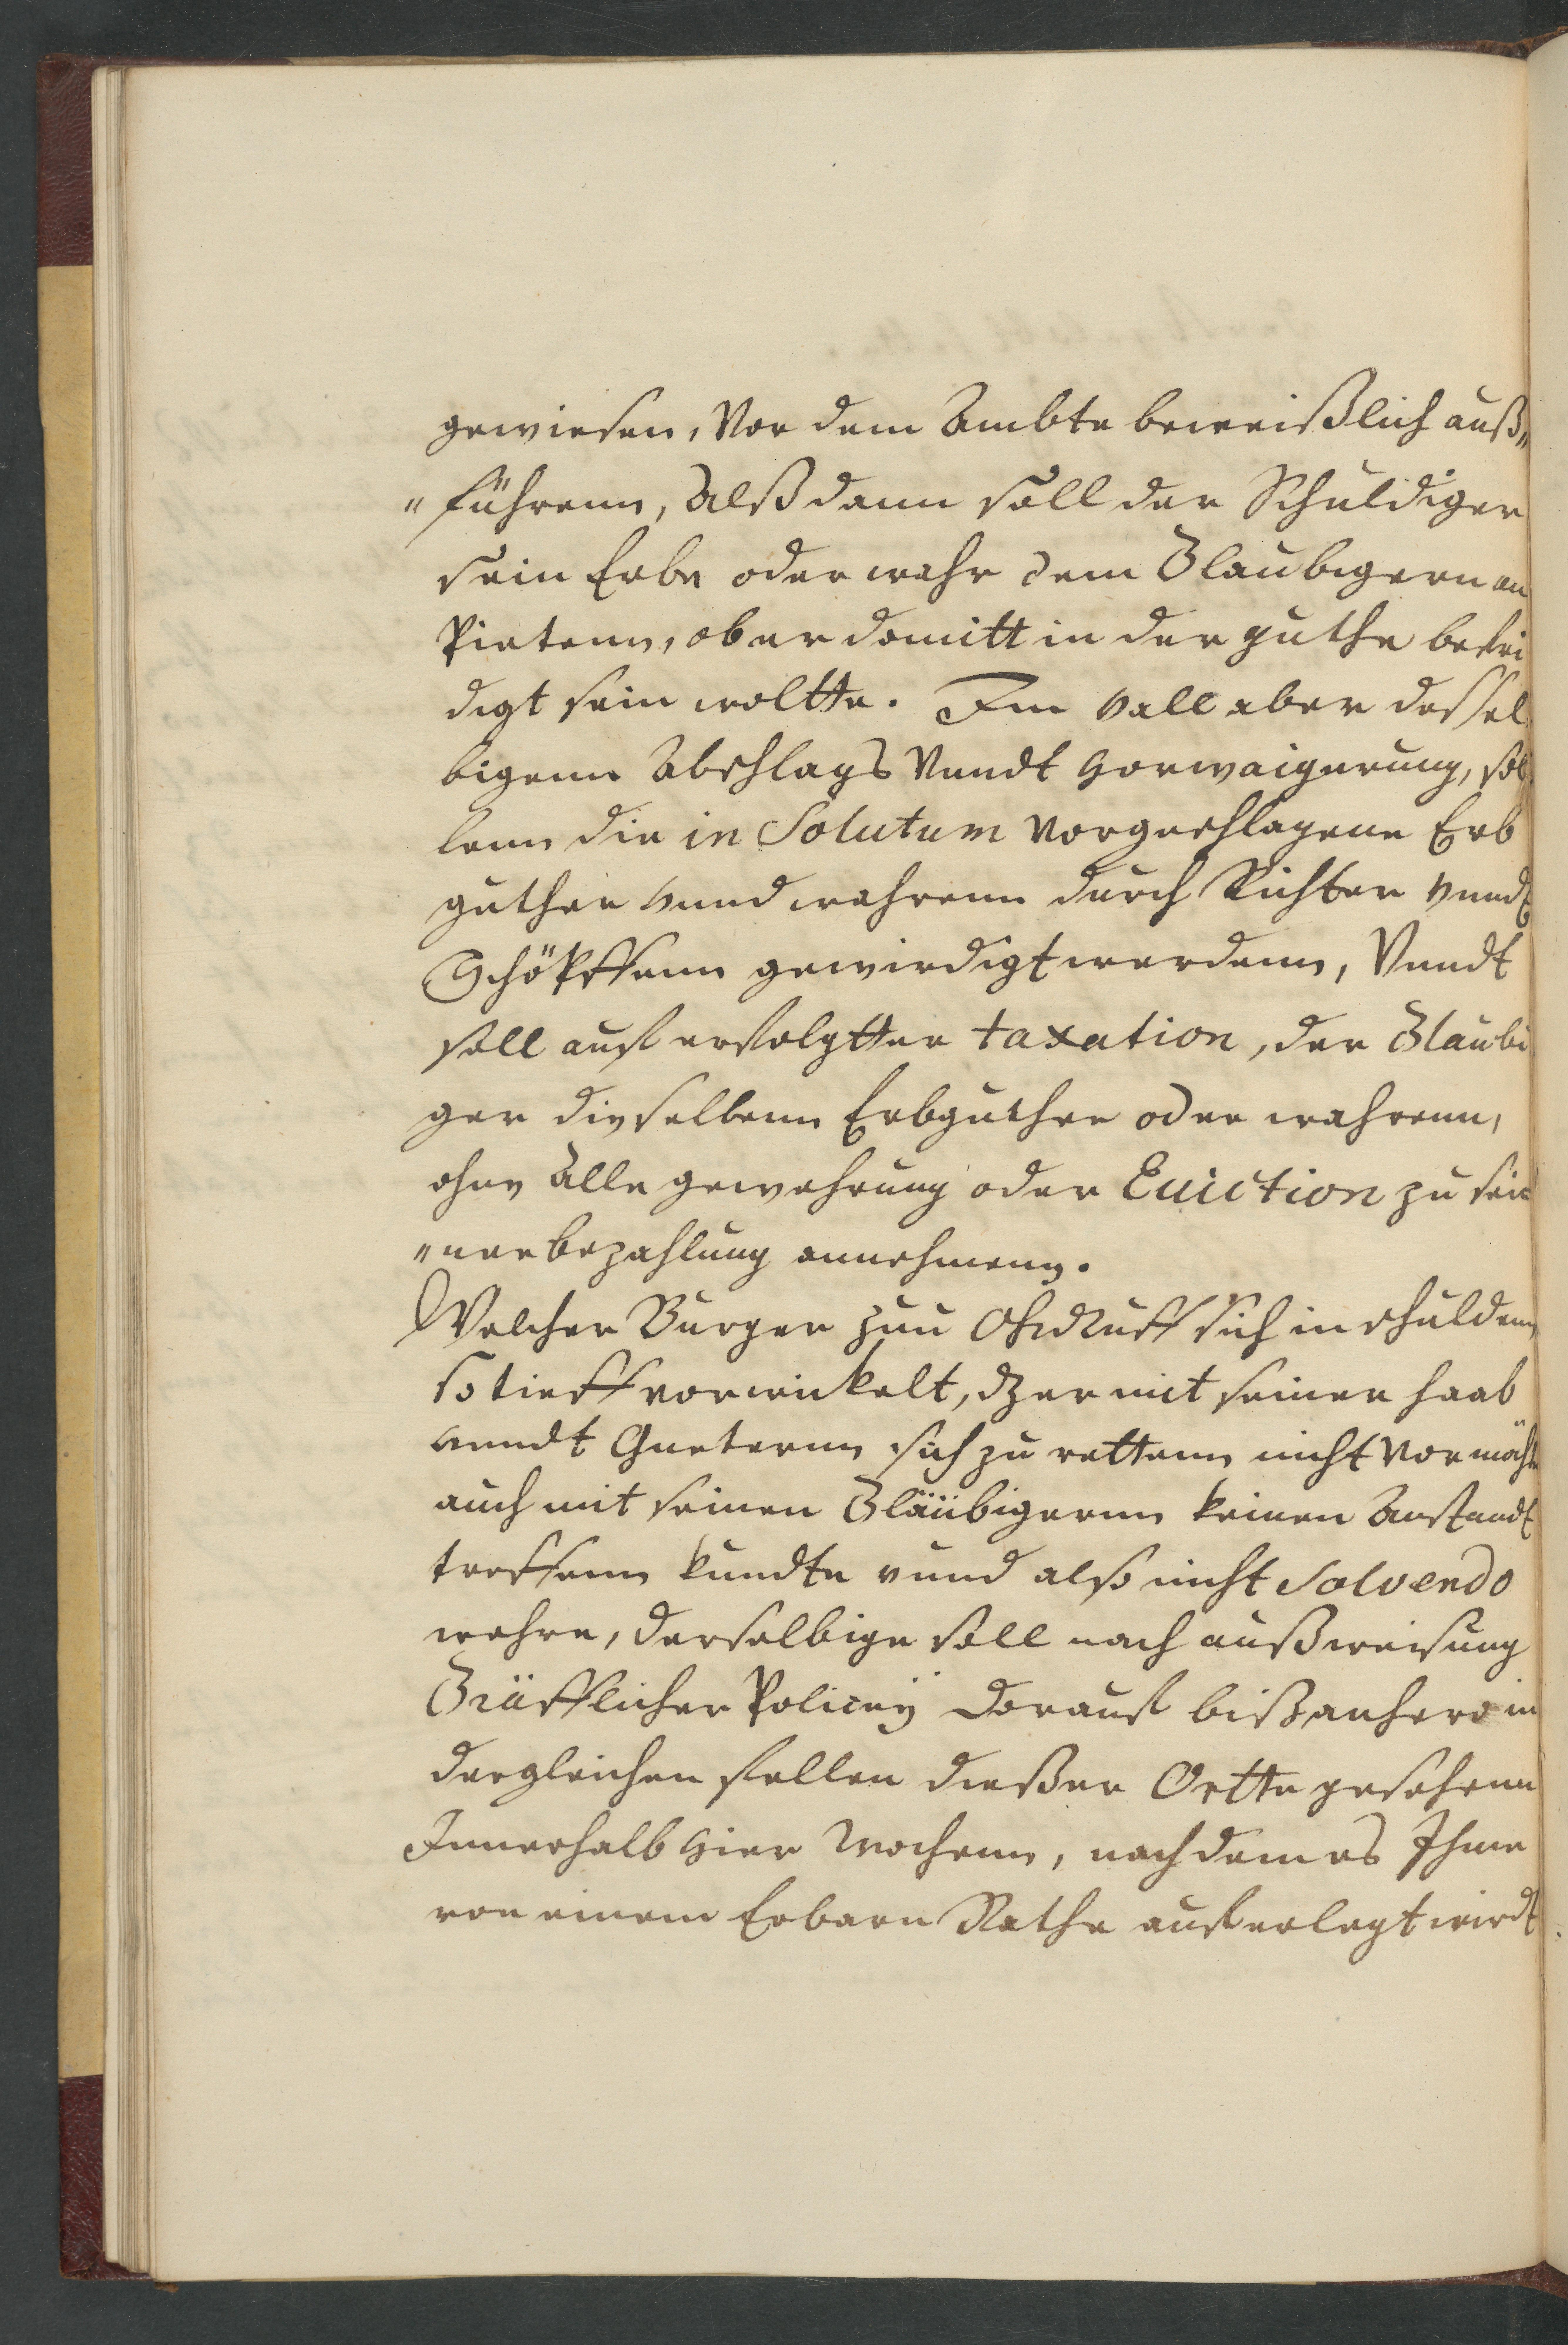 gewiesen, Vor dem Ambte beweißlich auß„
„führenn, Alß dann soll der Schuldiger
sein Erbe oder wahr dem Glaubigern an
Pietenn, ob er domitt in der guthe befri
digt sein woltte. Im vall aber dessel
bigenn Abschlags Vnndt Vorwaigerung, sol
lenn die in Solutum Vorgeschlagene Erb
guther vnnd wahrenn durch Richter vnndt
Schöpffenn gewirdigt werdenn, Vnndt
soll auf erfolgtter taxation, der Glaubi
ger dieselbenn Erbguther oder wahrenn,
ohne Alle gewehrung oder Euiction zu sei
„ner bezahlung annehmenn.
Welcher Burger zuu Ohrdruff sich in schuldenn
so tieff vorwickelt, dz er mit seiner haab
vnndt Gueternn sich zu rettenn nicht Vormöchte
auch mit seinen Gläubigernn keinen Anstandt
treffenn kundte vnnd also nicht Solvendo
wehre, derselbige soll nach außweisung
Gräfflicher Policey darauf bißanhero in
dergleichen fellen dießer Ortte gesehenn
Innerhalb Vier Wochenn, nach dem es Ihme
von einem Erbarn Rathe auferlegt wirdt